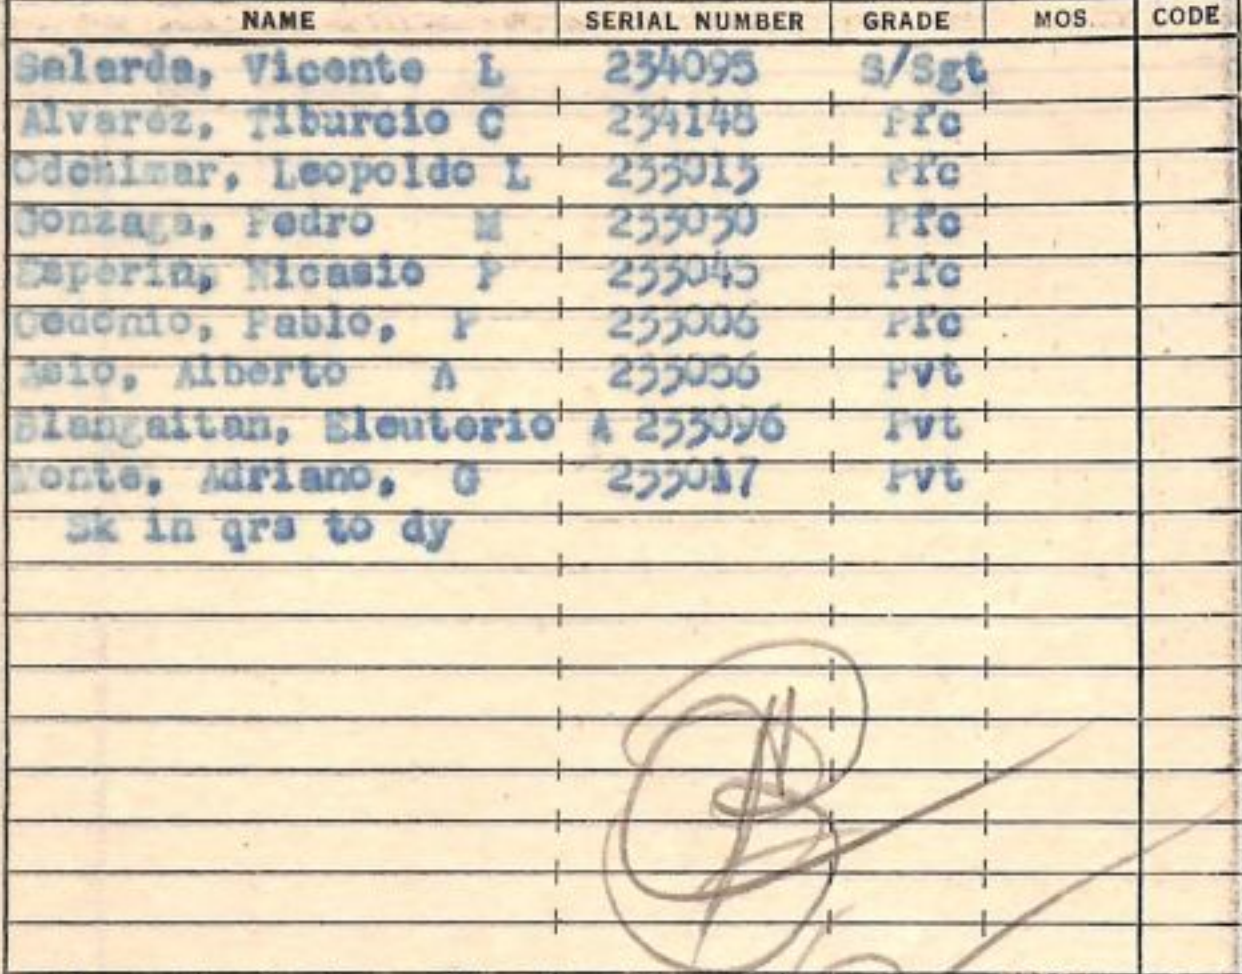 NAME SERIAL NUMBER GRADE MOS. CODE
Salarda, Vicente L 234095 S/Sgt
Alvarez, Tiburcio C 234148 Pfc
Odchimar, Leopoldo L 233013 Pfc
Gonzaga, Pedro M 233030 Pfc
Esperin, Nicasio P 233045 Pfc
Cedenio, Pablo, P 233006 Pfc
Asio, Alberto A 233056 Pvt
Blangaitan, Eleuterio A 233096 Pvt
Monte, Adriano, G 233017 Pvt
Sk in qrs to dy